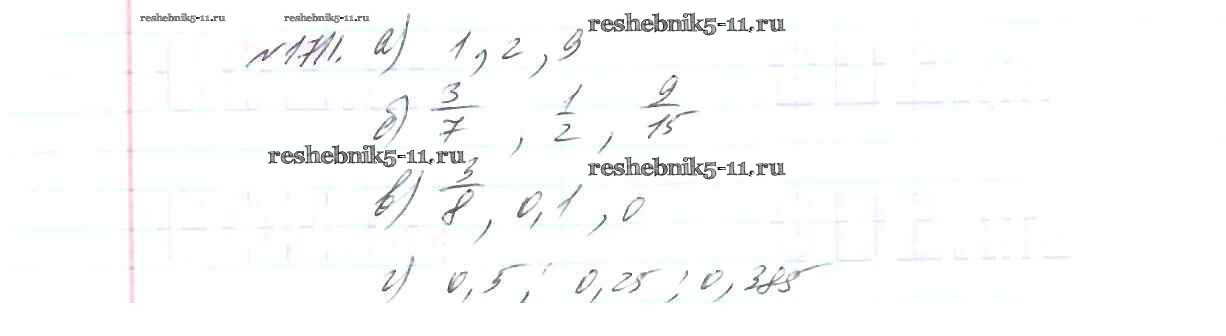 reshebnik5-11.ru reshebnik5-11.ru reshebnik5-11.ru
№1711. а) 1, 2, 9
б) 3/7, 1/2, 9/15
reshebnik5-11.ru reshebnik5-11.ru
в) 3/8, 0,1, 0
г) 0,5; 0,25; 0,385